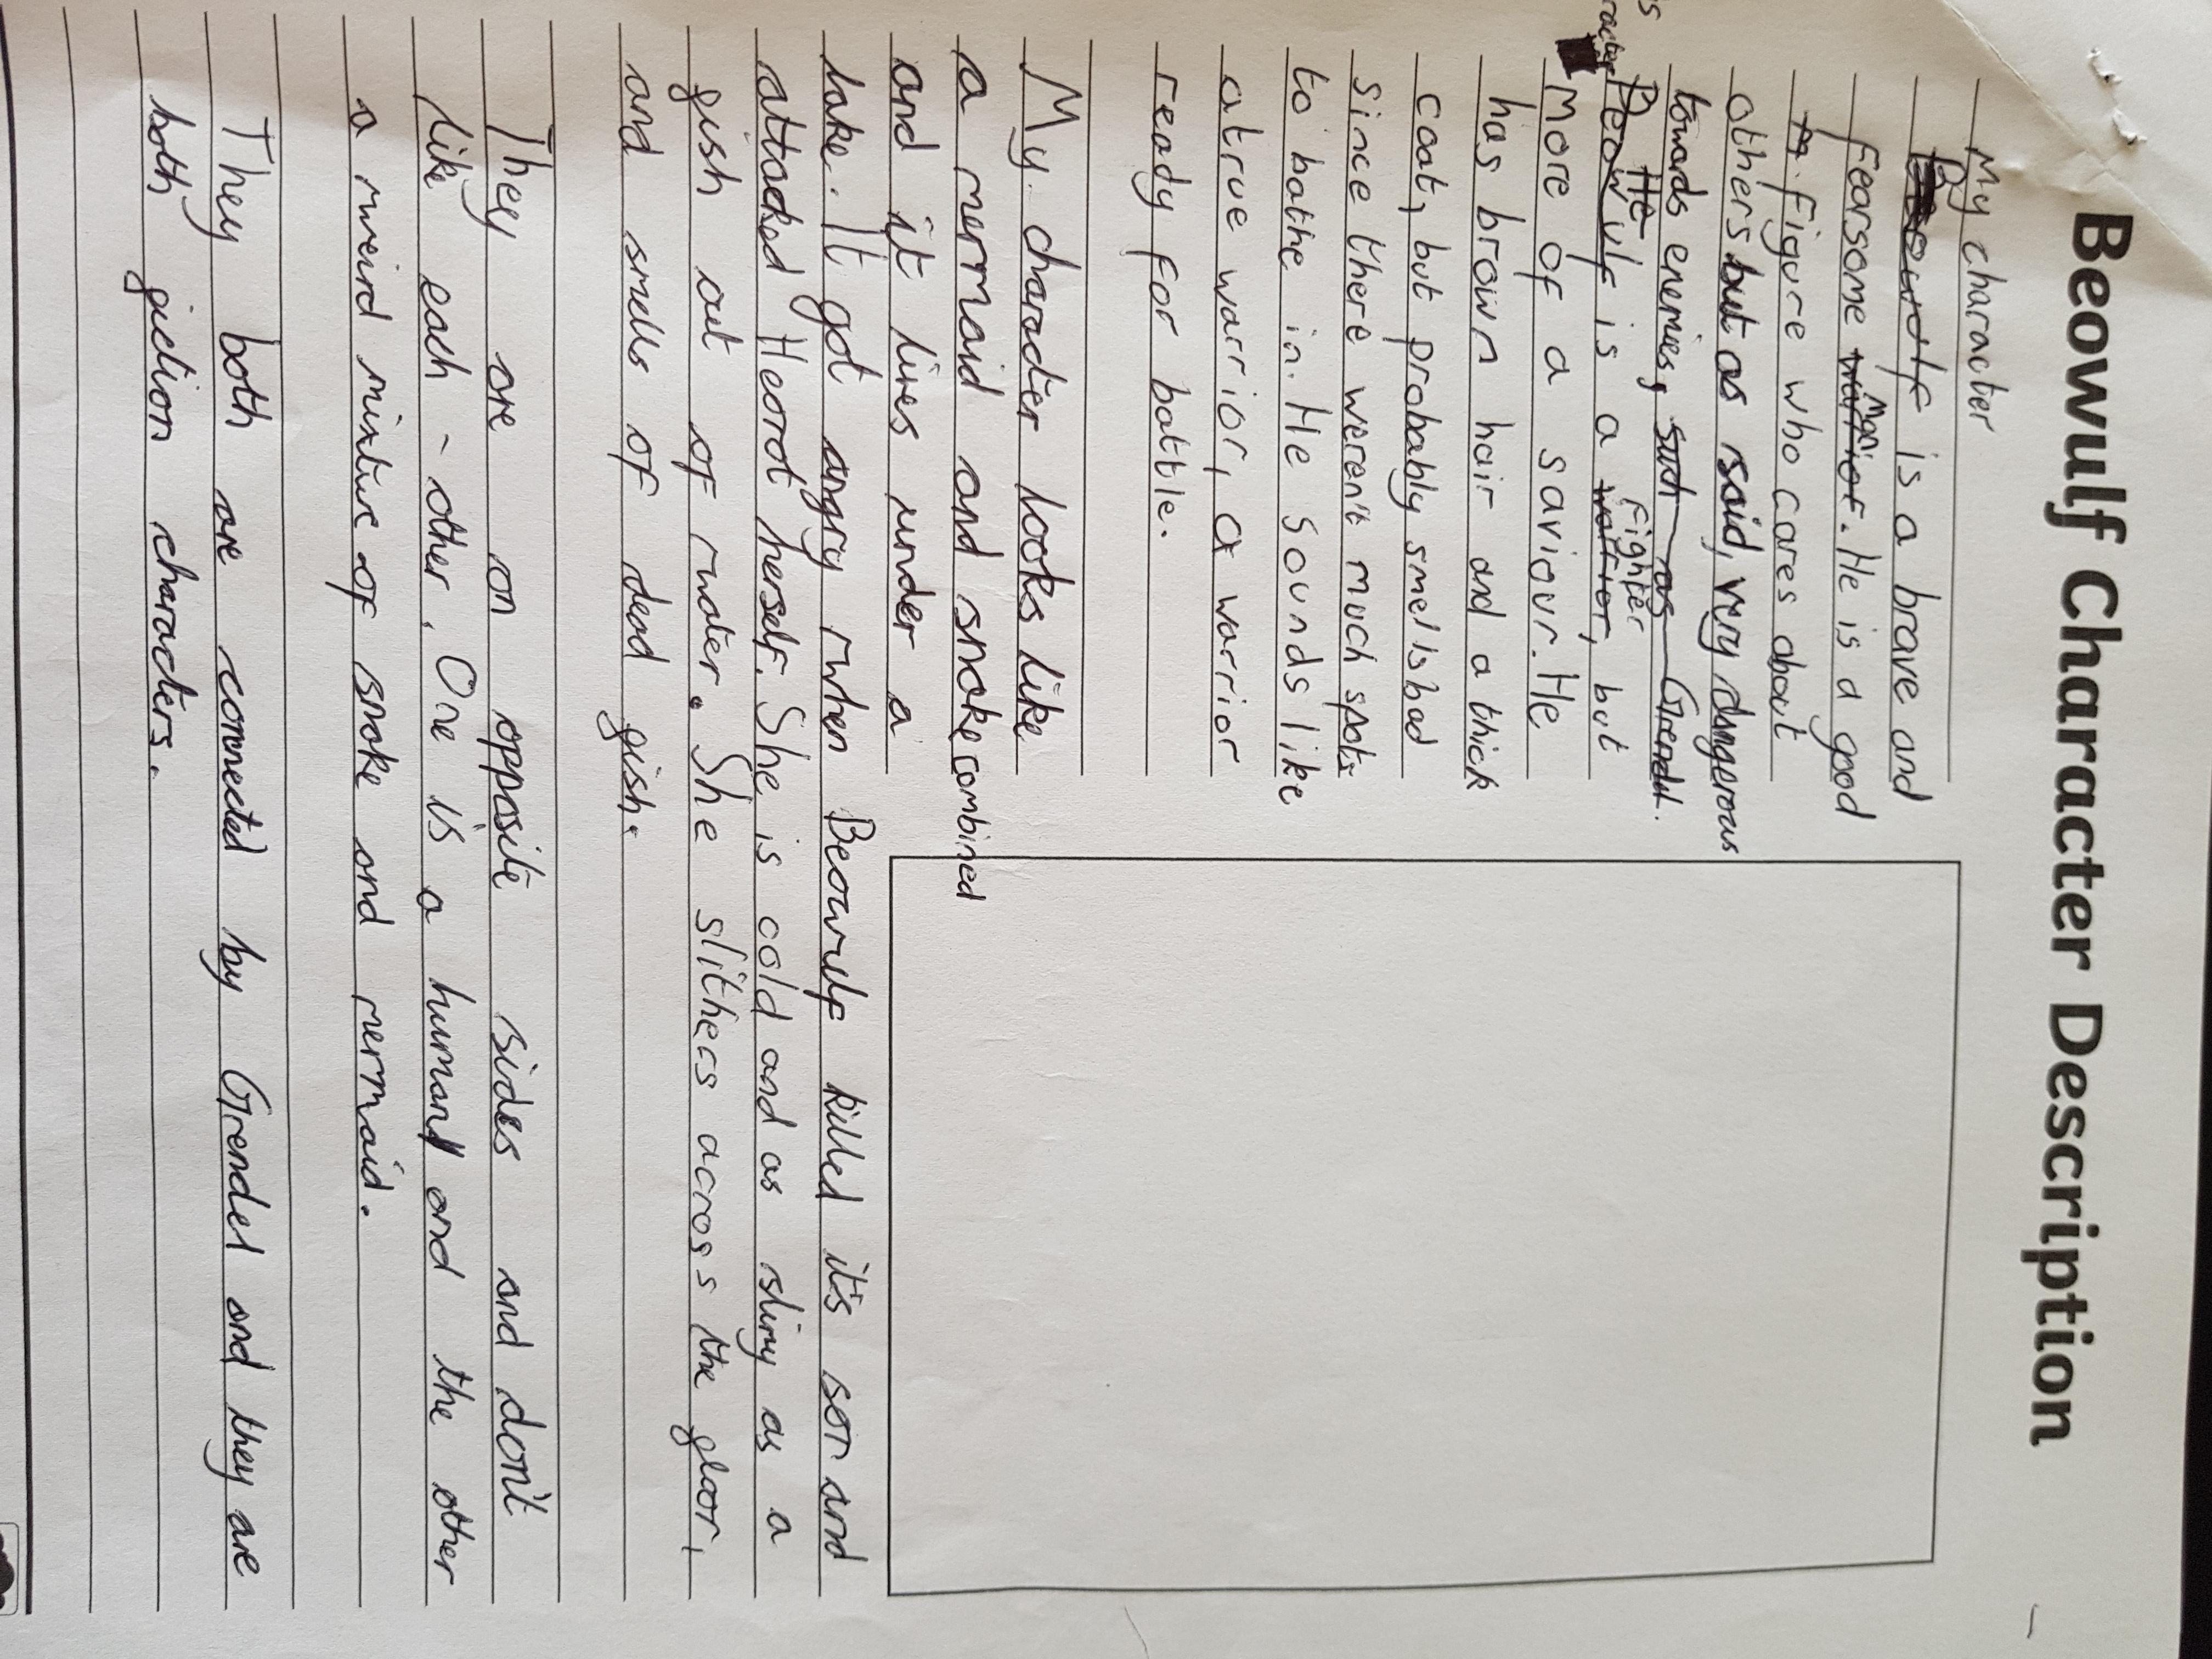 Beowulf Character Description
My character
Beowulf is a brave and
fearsome warrior. Man He is a good
figure who cares about
others but as said, very dangerous
towards enemies, such as Grendel.
He fighter
Beowulf is a warrior, but
more of a saviour. He
has brown hair and a thick
coat, but probably smells bad
since there weren't much spots
to bathe in. He sounds like
a true warrior, a warrior
ready for battle.
My character looks like
a mermaid and snake combined
and it lives under a
lake. It got angry when Beowulf killed it's son and
attacked Heorot herself. She is cold and as slimy as a
fish out of water. She slithers across the floor,
and smells of dead fish.
They are on opposite sides and don't
like each-other. One is a human and the other
a weird mixture of snake and mermaid.
They both are connected by Grendel and they are
both fiction characters.